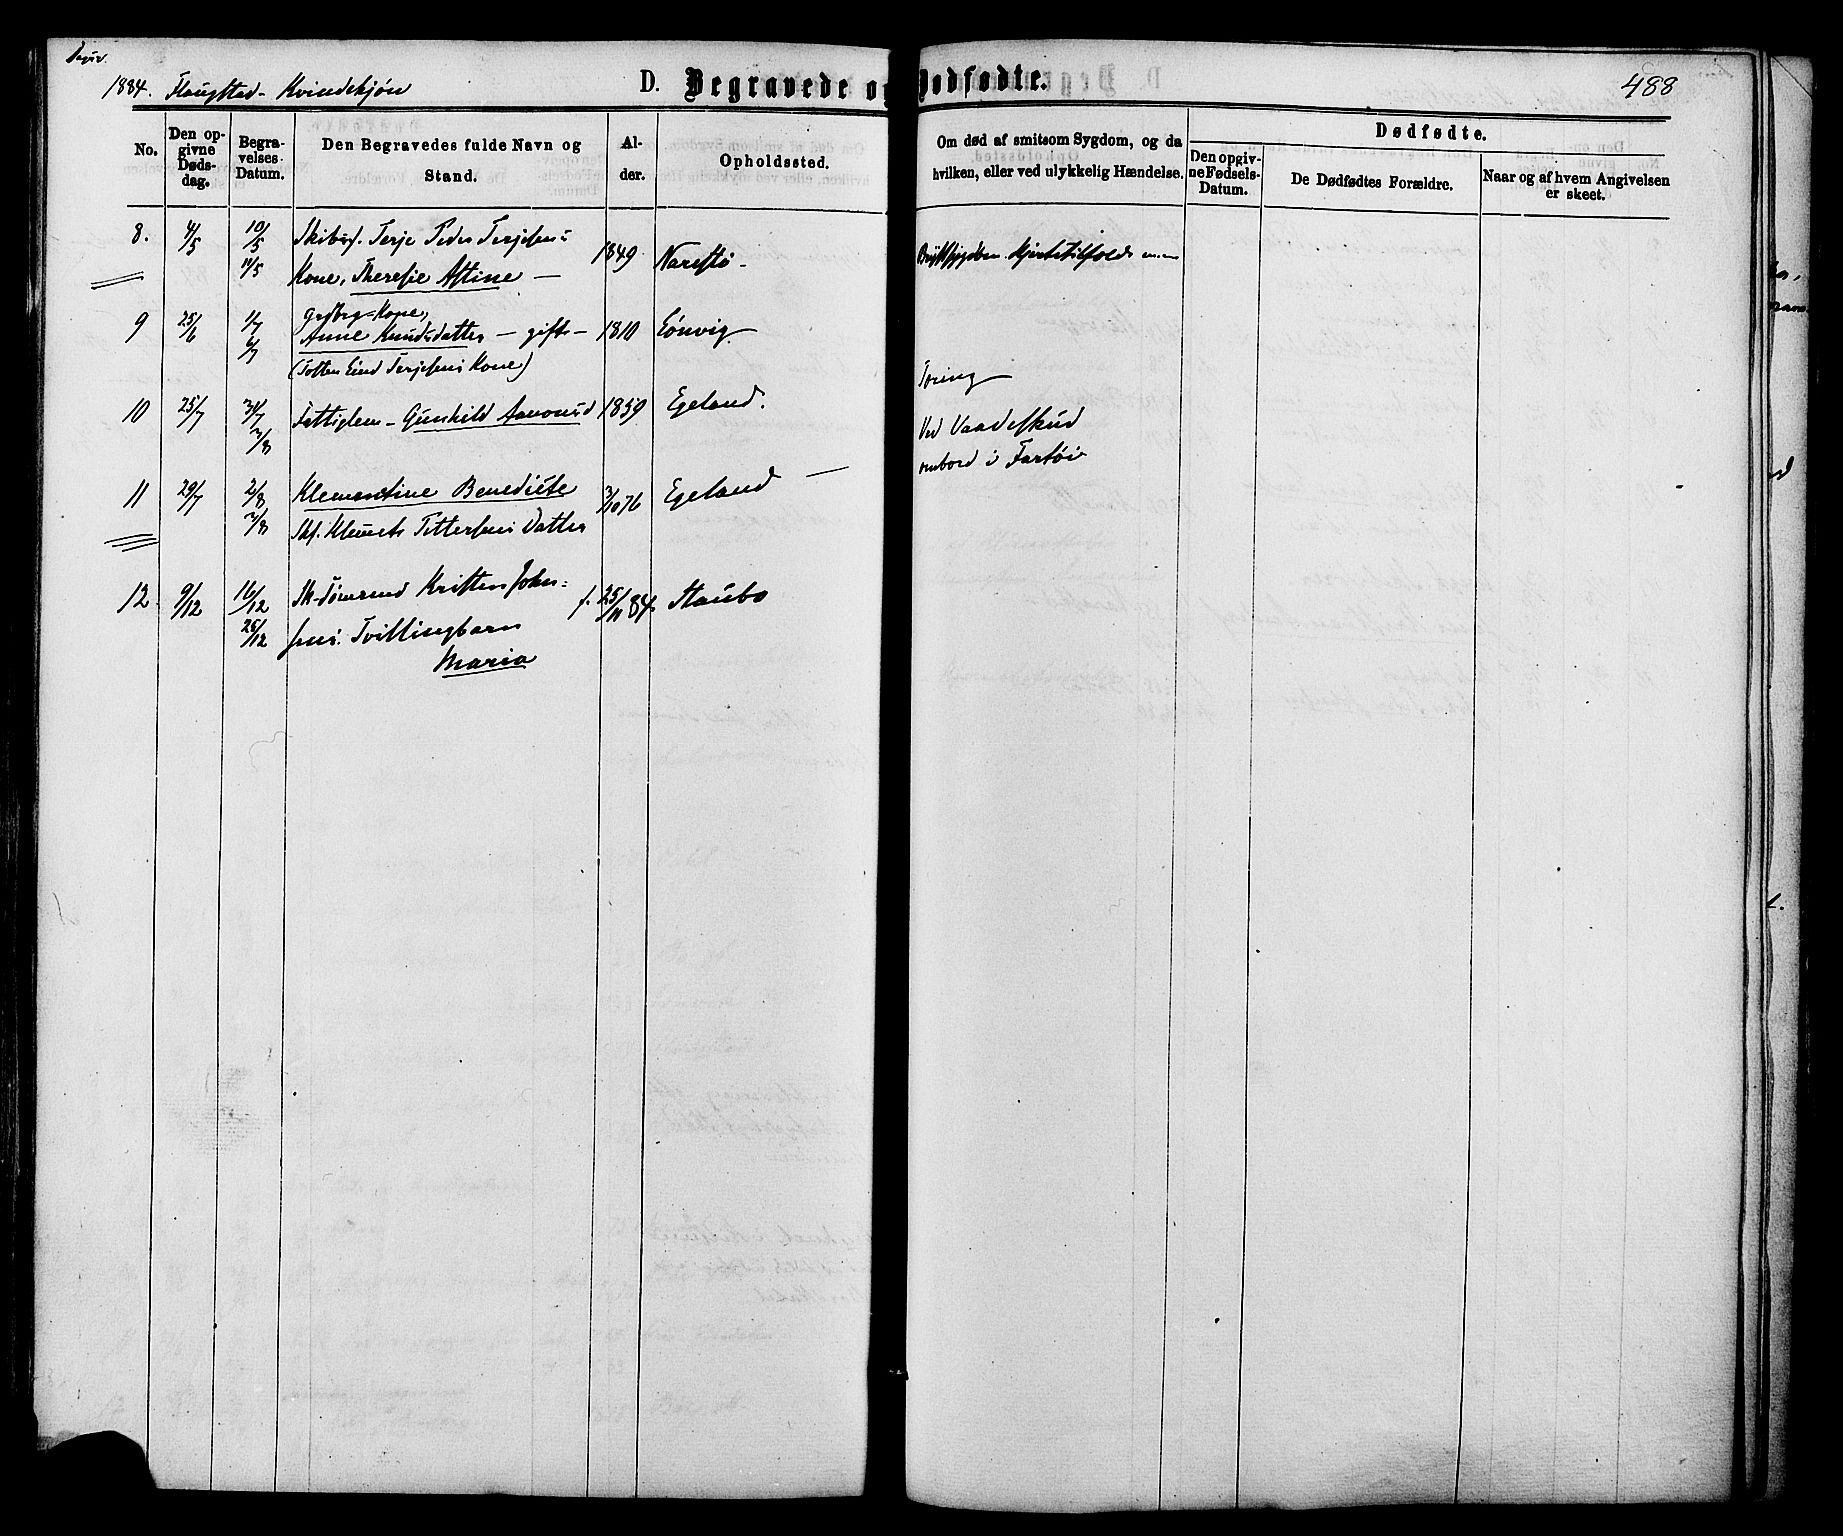 1884. Flaugstad - Kvindekjøn
D. Begravede og Dødfødte.
488
No.
Den opgivne Dødsdag.
Begravelses-Datum.
Den Begravedes fulde Navn og Stand.
Alder.
Opholdssted.
Om død af smitsom Sygdom, og da hvilken, eller ved ulykkelig Hændelse.
Dødfødte.
Den opgivne Fødsels-Datum.
De Dødfødtes Forældre.
Naar og af hvem Angivelsen er skeet.
8. 4/5 10/5 Skibsf. Terje Peder Terjesens 1849 Narestø - Brystsygdom. Hjertetilfold m. m
11/5 Kone, Theresie Astine -
9 25/6 1/7 Grdbrg-Kone,
6/7 Anne Knudsdatter - gift - 1810 Eónvig
(Totten Eind Terjesens Kone)
Tæring
10 25/7 31/7 Fattiglem - Gunhild Aanonsd 1859 Egeland.
3/8
Ved Vaadeskud
ombord i Fartøi
11 29/7 2/8 Klementine Benedicte 3/10 76 Egeland
3/8 Skf. Klemets Pettersens Datter
12. 9/12 16/12 Sk-Tømrmd Kristen John= f. 25/11 84. Staubo
25/12 sens. Tvillingbarn
Maria